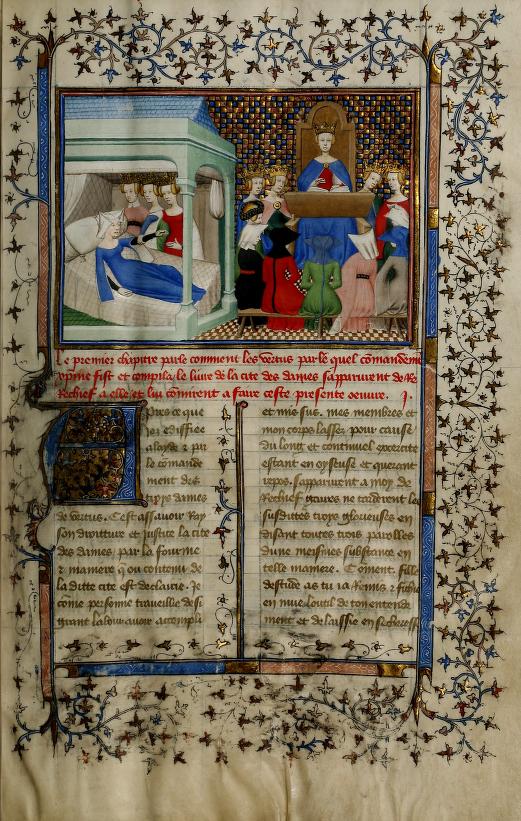 Le premier chapitre parle comment les vertus par le quel comandement
xpine fist et compila le livre de la cite des dames sapparurent de Re
Rechief a elle et lui commirent a faire ceste presente oeuvre. I.
Apres ce que
jez ediffiee
a layde z par
le comande
ment des
trois dames
de vertus. Cest assavoir Ray
son droitture et justice la cite
des dames par la fourme
z maniere q ou contenu de
la ditte cite est declairie. Je
come personne travaillie de si
grant labour avoir accompli
et mis sus. mes membres et
mon corps lassez pour cause
du long et continuel excercite
estant en oyseuse et querant
repos. sapparurent a moy de
Rechief gaires ne tarderent les
susdittes troys glorieuses en
disant toutes troys parolles
dune meismes substance en
telle maniere. Coment. fille
destude as tu ia Remis z fichie
en mue loutil de ton entende
ment et delaissie en secheresse